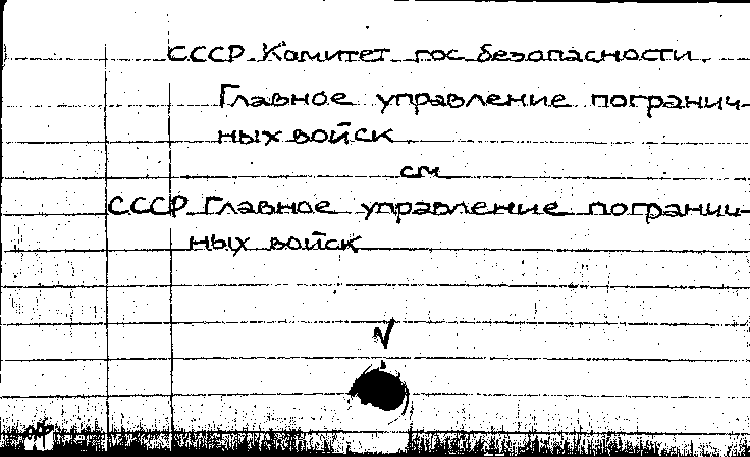 СССР. Комитет гос безопасности.
Главное управление погранич-
ных войск
см
СССР. Главное управление погранич-
ных войск